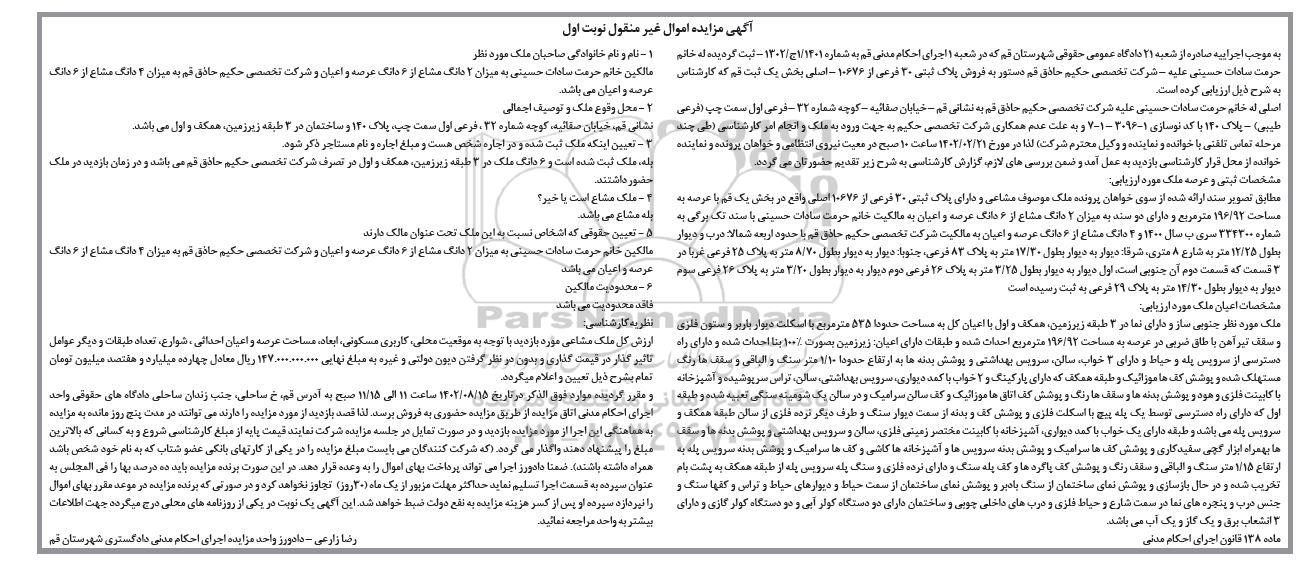 آگهی مزایده اموال غیر منقول نوبت اول
به موجب اجراییه صادره از شعبه ۲۱ دادگاه عمومی حقوقی شهرستان قم که در شعبه ۱ اجرای احکام مدنی قم به شماره ۱/۱۴۰۱ج/۱۳۰۲ – ثبت گردیده له خانم
حرمت سادات حسینی علیه – شرکت تخصصی حکیم حاذق قم دستور به فروش پلاک ثبتی ۳۰ فرعی از ۱۰۶۷۶ – اصلی بخش یک ثبت قم که کارشناس
به شرح ذیل ارزیابی کرده است.
اصلی له خانم حرمت سادات حسینی علیه شرکت تخصصی حکیم حاذق قم به نشانی قم – خیابان صفائیه – کوچه شماره ۳۲ – فرعی اول سمت چپ (فرعی
طیبی) – پلاک ۱۴۰ با کد نوسازی ۱-۳۰۹۶-۱-۷ و به علت عدم همکاری شرکت تخصصی حکیم به جهت ورود به ملک و انجام امر کارشناسی (طی چند
مرحله تماس تلفنی با خوانده و نماینده و وکیل محترم شرکت) لذا در مورخ ۱۴۰۲/۰۲/۲۱ ساعت ۱۰ صبح در معیت نیروی انتظامی و خواهان پرونده و نماینده
خوانده از محل قرار کارشناسی بازدید به عمل آمد و ضمن بررسی های لازم، گزارش کارشناسی به شرح زیر تقدیم حضورتان می گردد.
مشخصات ثبتی و عرصه ملک مورد ارزیابی:
مطابق تصویر سند ارائه شده از سوی خواهان پرونده ملک موصوف مشاعی و دارای پلاک ثبتی ۳۰ فرعی از ۱۰۶۷۶ اصلی واقع در بخش یک قم با عرصه به
مساحت ۱۹۶/۹۲ مترمربع و دارای دو سند به میزان ۲ دانگ مشاع از ۶ دانگ عرصه و اعیان به مالکیت خانم حرمت سادات حسینی با سند تک برگی به
شماره ۳۳۴۳۰۰ سری ب سال ۱۴۰۰ و ۴ دانگ مشاع از ۶ دانگ عرصه و اعیان به مالکیت شرکت تخصصی حکیم حاذق قم با حدود اربعه شمالا: درب و دیوار
بطول ۱۲/۲۵ متر به شارع ۸ متری، شرقا: دیوار به دیوار بطول ۱۷/۳۰ متر به پلاک ۸۳ فرعی، جنوبا: دیوار به دیوار بطول ۸/۷۰ متر به پلاک ۲۵ فرعی غربا در
۳ قسمت که قسمت دوم آن جنوبی است، اول دیوار به دیوار بطول ۳/۲۵ متر به پلاک ۲۶ فرعی دوم دیوار به دیوار بطول ۳/۲۰ متر به پلاک ۲۶ فرعی سوم
دیوار به دیوار بطول ۱۴/۳۰ متر به پلاک ۲۹ فرعی به ثبت رسیده است
مشخصات اعیان ملک مورد ارزیابی:
ملک مورد نظر جنوبی ساز و دارای نما در ۳ طبقه زیرزمین، همکف و اول با اعیان کل به مساحت حدودا ۵۳۵ مترمربع با اسکلت دیوار باربر و ستون فلزی
و سقف تیرآهن با طاق ضربی در عرصه به مساحت ۱۹۶/۹۲ مترمربع احداث شده و طبقات دارای اعیان: زیرزمین بصورت ۱۰۰٪ بنا احداث شده و دارای راه
دسترسی از سرویس پله و حیاط و دارای ۳ خواب، سالن، سرویس بهداشتی و پوشش بدنه ها به ارتفاع حدودا ۱/۱۰ متر سنگ و الباقی و سقف ها رنگ
مستهلک شده و پوشش کف ها موزائیک و طبقه همکف که دارای پارکینگ و ۲ خواب با کمد دیواری، سرویس بهداشتی، سالن، تراس سرپوشیده و آشپزخانه
با کابینت فلزی و هود و پوشش بدنه ها و سقف ها رنگ و پوشش کف اتاق ها موزائیک و کف سالن سرامیک و در سالن یک شومینه سنگی تعبیه شده و طبقه
اول که دارای راه دسترسی توسط یک پله پیچ با اسکلت فلزی و پوشش کف و بدنه از سمت دیوار سنگ و طرف دیگر نرده فلزی از سالن طبقه همکف و
سرویس پله می باشد و طبقه دارای یک خواب با کمد دیواری، آشپزخانه با کابینت مختصر زمینی فلزی، سالن و سرویس بهداشتی و پوشش بدنه ها و سقف
ها بهمراه ابزار گچی سفیدکاری و پوشش کف ها سرامیک و پوشش بدنه سرویس ها و آشپزخانه ها کاشی و کف ها سرامیک و پوشش بدنه سرویس پله به
ارتفاع ۱/۱۵ متر سنگ و الباقی و سقف رنگ و پوشش کف پاگرد ها و کف پله سنگ و دارای نرده فلزی و سنگ پله سرویس پله از طبقه همکف به پشت بام
تخریب شده و در حال بازسازی و پوشش نمای ساختمان از سنگ بادبر و پوشش نمای ساختمان از سمت حیاط و دیوارهای حیاط و تراس و کفها سنگ و
جنس درب و پنجره های نما در سمت شارع و حیاط فلزی و درب های داخلی چوبی و ساختمان دارای دو دستگاه کولر آبی و دو دستگاه کولر گازی و دارای
۳ انشعاب برق و یک گاز و یک آب می باشد.
ماده ۱۳۸ قانون اجرای احکام مدنی
۱ – نام و نام خانوادگی صاحبان ملک مورد نظر
مالکین خانم حرمت سادات حسینی به میزان ۲ دانگ مشاع از ۶ دانگ عرصه و اعیان و شرکت تخصصی حکیم حاذق قم به میزان ۴ دانگ مشاع از ۶ دانگ
عرصه و اعیان می باشد.
۲ – محل وقوع ملک و توصیف اجمالی
نشانی قم، خیابان صفائیه، کوچه شماره ۳۲، فرعی اول سمت چپ، پلاک ۱۴۰ و ساختمان در ۳ طبقه زیرزمین، همکف و اول می باشد.
۳ – تعیین اینکه ملک ثبت شده و در اجاره شخص هست و مبلغ اجاره و نام مستاجر ذکر شود.
بله، ملک ثبت شده است و ۶ دانگ ملک در ۳ طبقه زیرزمین، همکف و اول در تصرف شرکت تخصصی حکیم حاذق قم می باشد و در زمان بازدید در ملک
حضور داشتند.
۴ – ملک مشاع است یا خیر؟
بله مشاع می باشد.
۵ – تعیین حقوقی که اشخاص نسبت به این ملک تحت عنوان مالک دارند
مالکین خانم حرمت سادات حسینی به میزان ۲ دانگ مشاع از ۶ دانگ عرصه و اعیان و شرکت تخصصی حکیم حاذق قم به میزان ۴ دانگ مشاع از ۶ دانگ
عرصه و اعیان می باشد
۶ – محدودیت مالکین
فاقد محدودیت می باشد
نظریه کارشناسی:
ارزش کل ملک مشاعی مورد بازدید با توجه به موقعیت محلی، کاربری مسکونی، ابعاد، مساحت عرصه و اعیان احداثی، شوارع، تعداد طبقات و دیگر عوامل
تاثیر گذار در قیمت گذاری و بدون در نظر گرفتن دیون دولتی و غیره به مبلغ نهایی ۱۴۷.۰۰۰.۰۰۰.۰۰۰ ریال معادل چهارده میلیارد و هفتصد میلیون تومان
تمام بشرح ذیل تعیین و اعلام میگردد.
و مقرر گردیده موارد فوق الذکر در تاریخ ۱۴۰۲/۰۸/۱۵ ساعت ۱۱ الی ۱۱/۱۵ صبح به آدرس قم، خ ساحلی، جنب زندان ساحلی دادگاه های حقوقی واحد
اجرای احکام مدنی اتاق مزایده از طریق مزایده حضوری به فروش برسد. لذا قصد بازدید از مورد مزایده را دارند می توانند در مدت پنج روز مانده به مزایده
به هماهنگی این اجرا از مورد مزایده بازدید و در صورت تمایل در جلسه مزایده شرکت نمایند قیمت پایه از مبلغ کارشناسی شروع و به کسانی که بالاترین
مبلغ را پیشنهاد دهند واگذار می گردد. (که شرکت کنندگان می بایست مبلغ مزایده را در یکی از کارتهای بانکی عضو شتاب که به نام خود شخص باشد
همراه داشته باشند). ضمنا دادورز اجرا می تواند پرداخت بهای اموال را به وعده قرار دهد. در این صورت برنده مزایده باید ده درصد بها را فی المجلس به
عنوان سپرده به قسمت اجرا تسلیم نماید حداکثر مهلت مزبور از یک ماه (۳۰ روز) تجاوز نخواهد کرد و در صورتی که برنده مزایده در موعد مقرر بهای اموال
را نپردازد سپرده او پس از کسر هزینه مزایده به نفع دولت ضبط خواهد شد. این آگهی یک نوبت در یکی از روزنامه های محلی درج میگردد جهت اطلاعات
بیشتر به واحد مراجعه نمائید.
رضا زارعی – دادورز واحد مزایده اجرای احکام مدنی دادگستری شهرستان قم
ParsNamadData